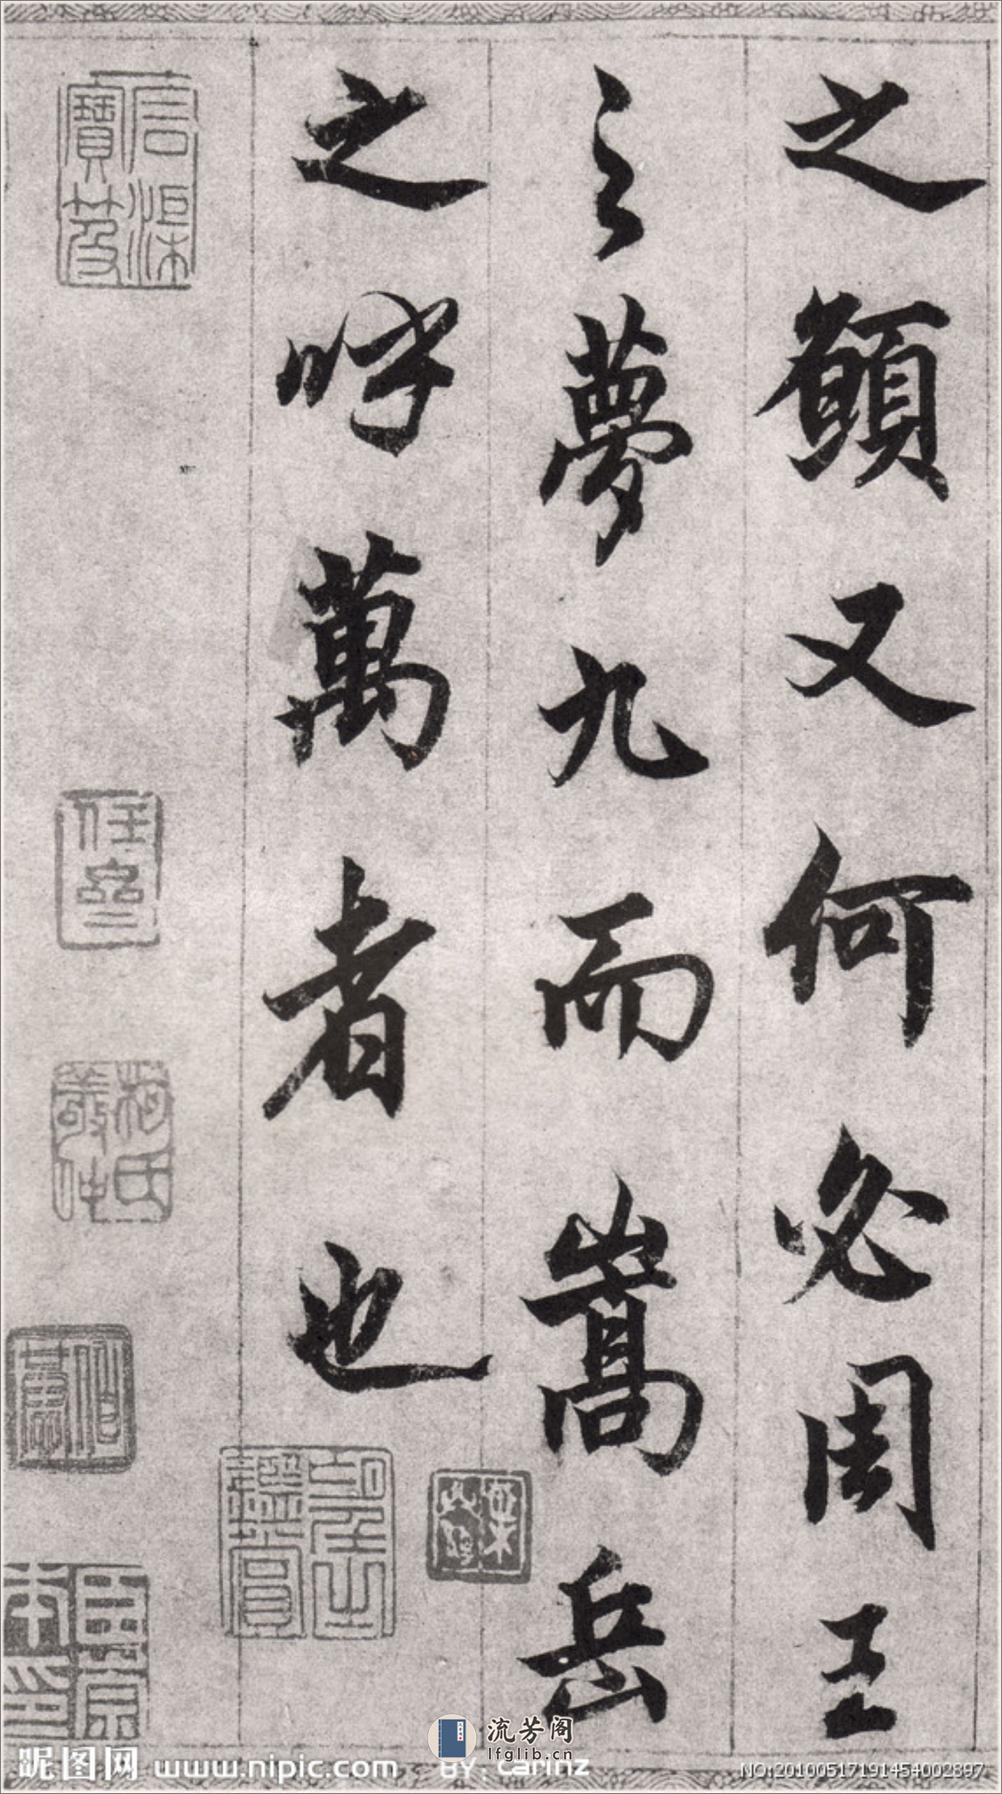 之願又何必周王
之夢九而嵩岳
之呼萬者也
石渠
寶笈
昵图网 www.nipic.com BY:carinz
流芳阁
lfglib.cn
NO:20100517191454002897